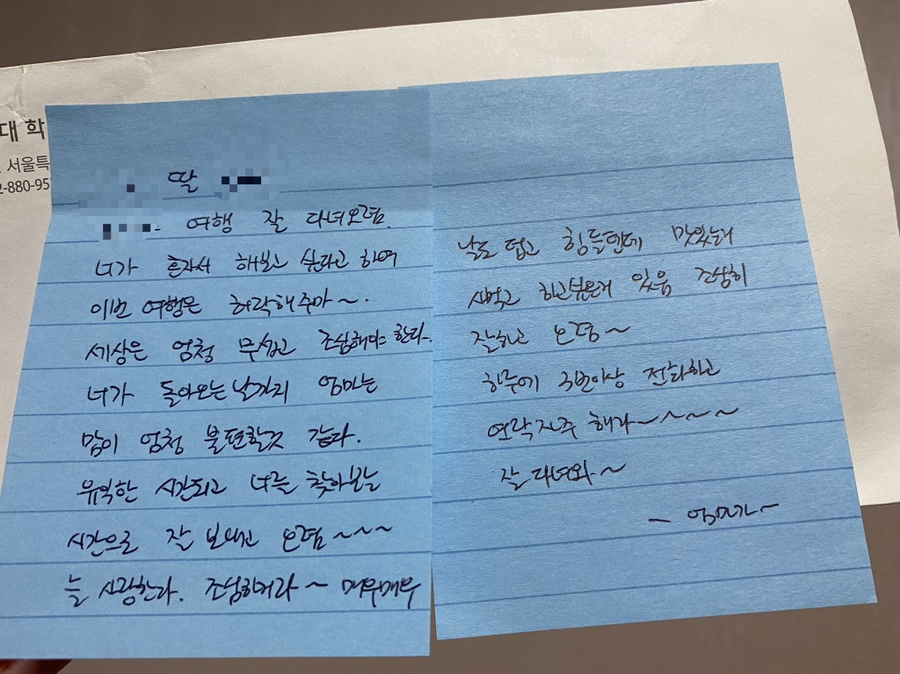 대 학
서울특
2-880-95
딸
여행 잘 다녀오렴.
너가 혼자서 해보고 싶다고 하여
이번 여행은 허락해주마~.
세상은 엄청 무섭고 조심해야 한다.
너가 돌아오는 날까지 엄마는
맘이 엄청 불편할것 같다.
유익한 시간되고 너를 찾아보는
시간으로 잘 보내고 오렴~~~
늘 사랑한다. 조심하거라~ 매우매우
날도 덥고 힘들텐데 맛있는거
사먹고 하고싶은거 있음 조심히
잘하고 오렴~
하루에 3번이상 전화하고
연락자주 해라~~~~
잘 다녀와~
- 엄마가~